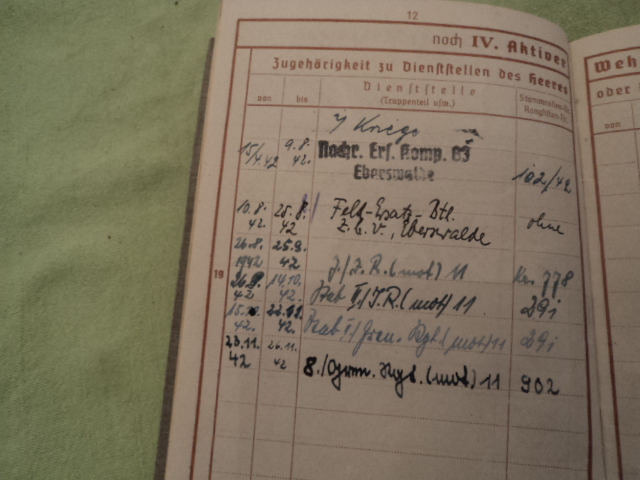 12
noch IV. Aktiver
Weh
Zugehörigkeit zu Dienststellen des Heeres
oder
von
bis
Dienststelle
(Truppenteil usw.)
Stammrollen-Nr.
Ranglisten-Nr.
von
Kriegs
15/4 42 9.8. 42. Nachr. Ers. Komp. 63
Eberswalde 102/42
10.8. 42. 25.8. 42 Feld-Ersatz-Btl.
z.b.V., Eberswalde ohne
26.8. 1942 25.9. 42 J.R.(mot) 11 778
19
26.9. 42 14.10. 42. Stab II/J.R.(mot) 11 29i
15.10. 42. 22.11. 42. Stab II/Gren. Rgt.(mot) 11 29i
23.11. 42 26.11. 42 8./Gren. Rgt.(mot) 11 902
19